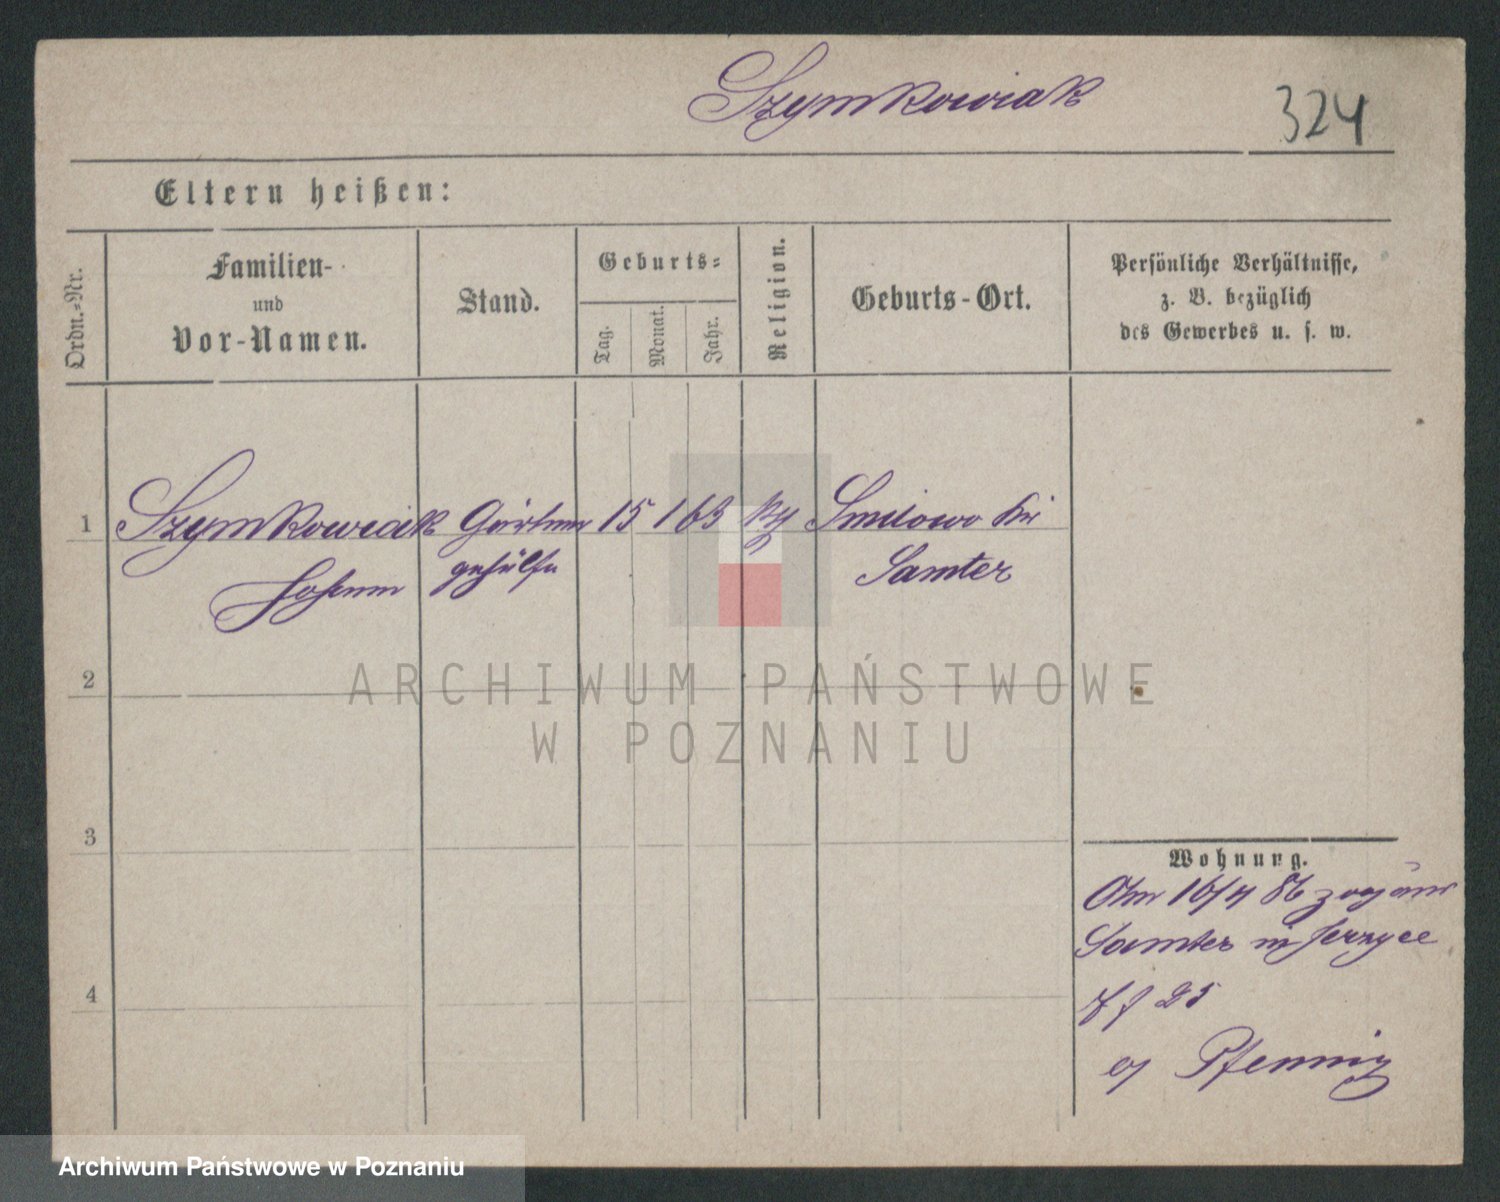 Szymkowiak
324
Eltern heißen:
Ordn.-Nr.
Familien-
und
Vor-Namen.
Stand.
Geburts-
Tag.
Monat.
Jahr.
Religion.
Geburts-Ort.
Persönliche Verhältnisse,
z. B. bezüglich
des Gewerbes u. s. w.
1
Szymkowiak Gärtner 15 1 63 Smilowo
Johann gehülfe Samter
2
ARCHIWUM PAŃSTWOWE
W POZNANIU
3
Wohnung.
16/4 86 zog
Samter in Jerzyce
4
25
Pfennig
Archiwum Państwowe w Poznaniu